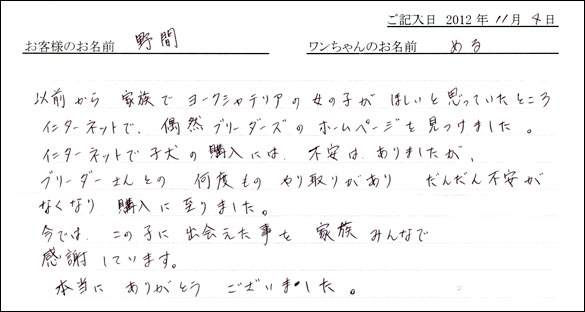 ご記入日 2012年11月4日
お客様のお名前 野間 ワンちゃんのお名前 める
以前から 家族で ヨークシャテリアの女の子が ほしいと思っていたところ
インターネットで、偶然ブリーダーズのホームページを見つけました。
インターネットで子犬の購入には、不安は、ありましたが、
ブリーダーさんとの 何度もの やり取りがあり だんだん不安が
なくなり 購入に至りました。
今では、この子に出会えた事を 家族みんなで
感謝しています。
本当に ありがとう ございました。